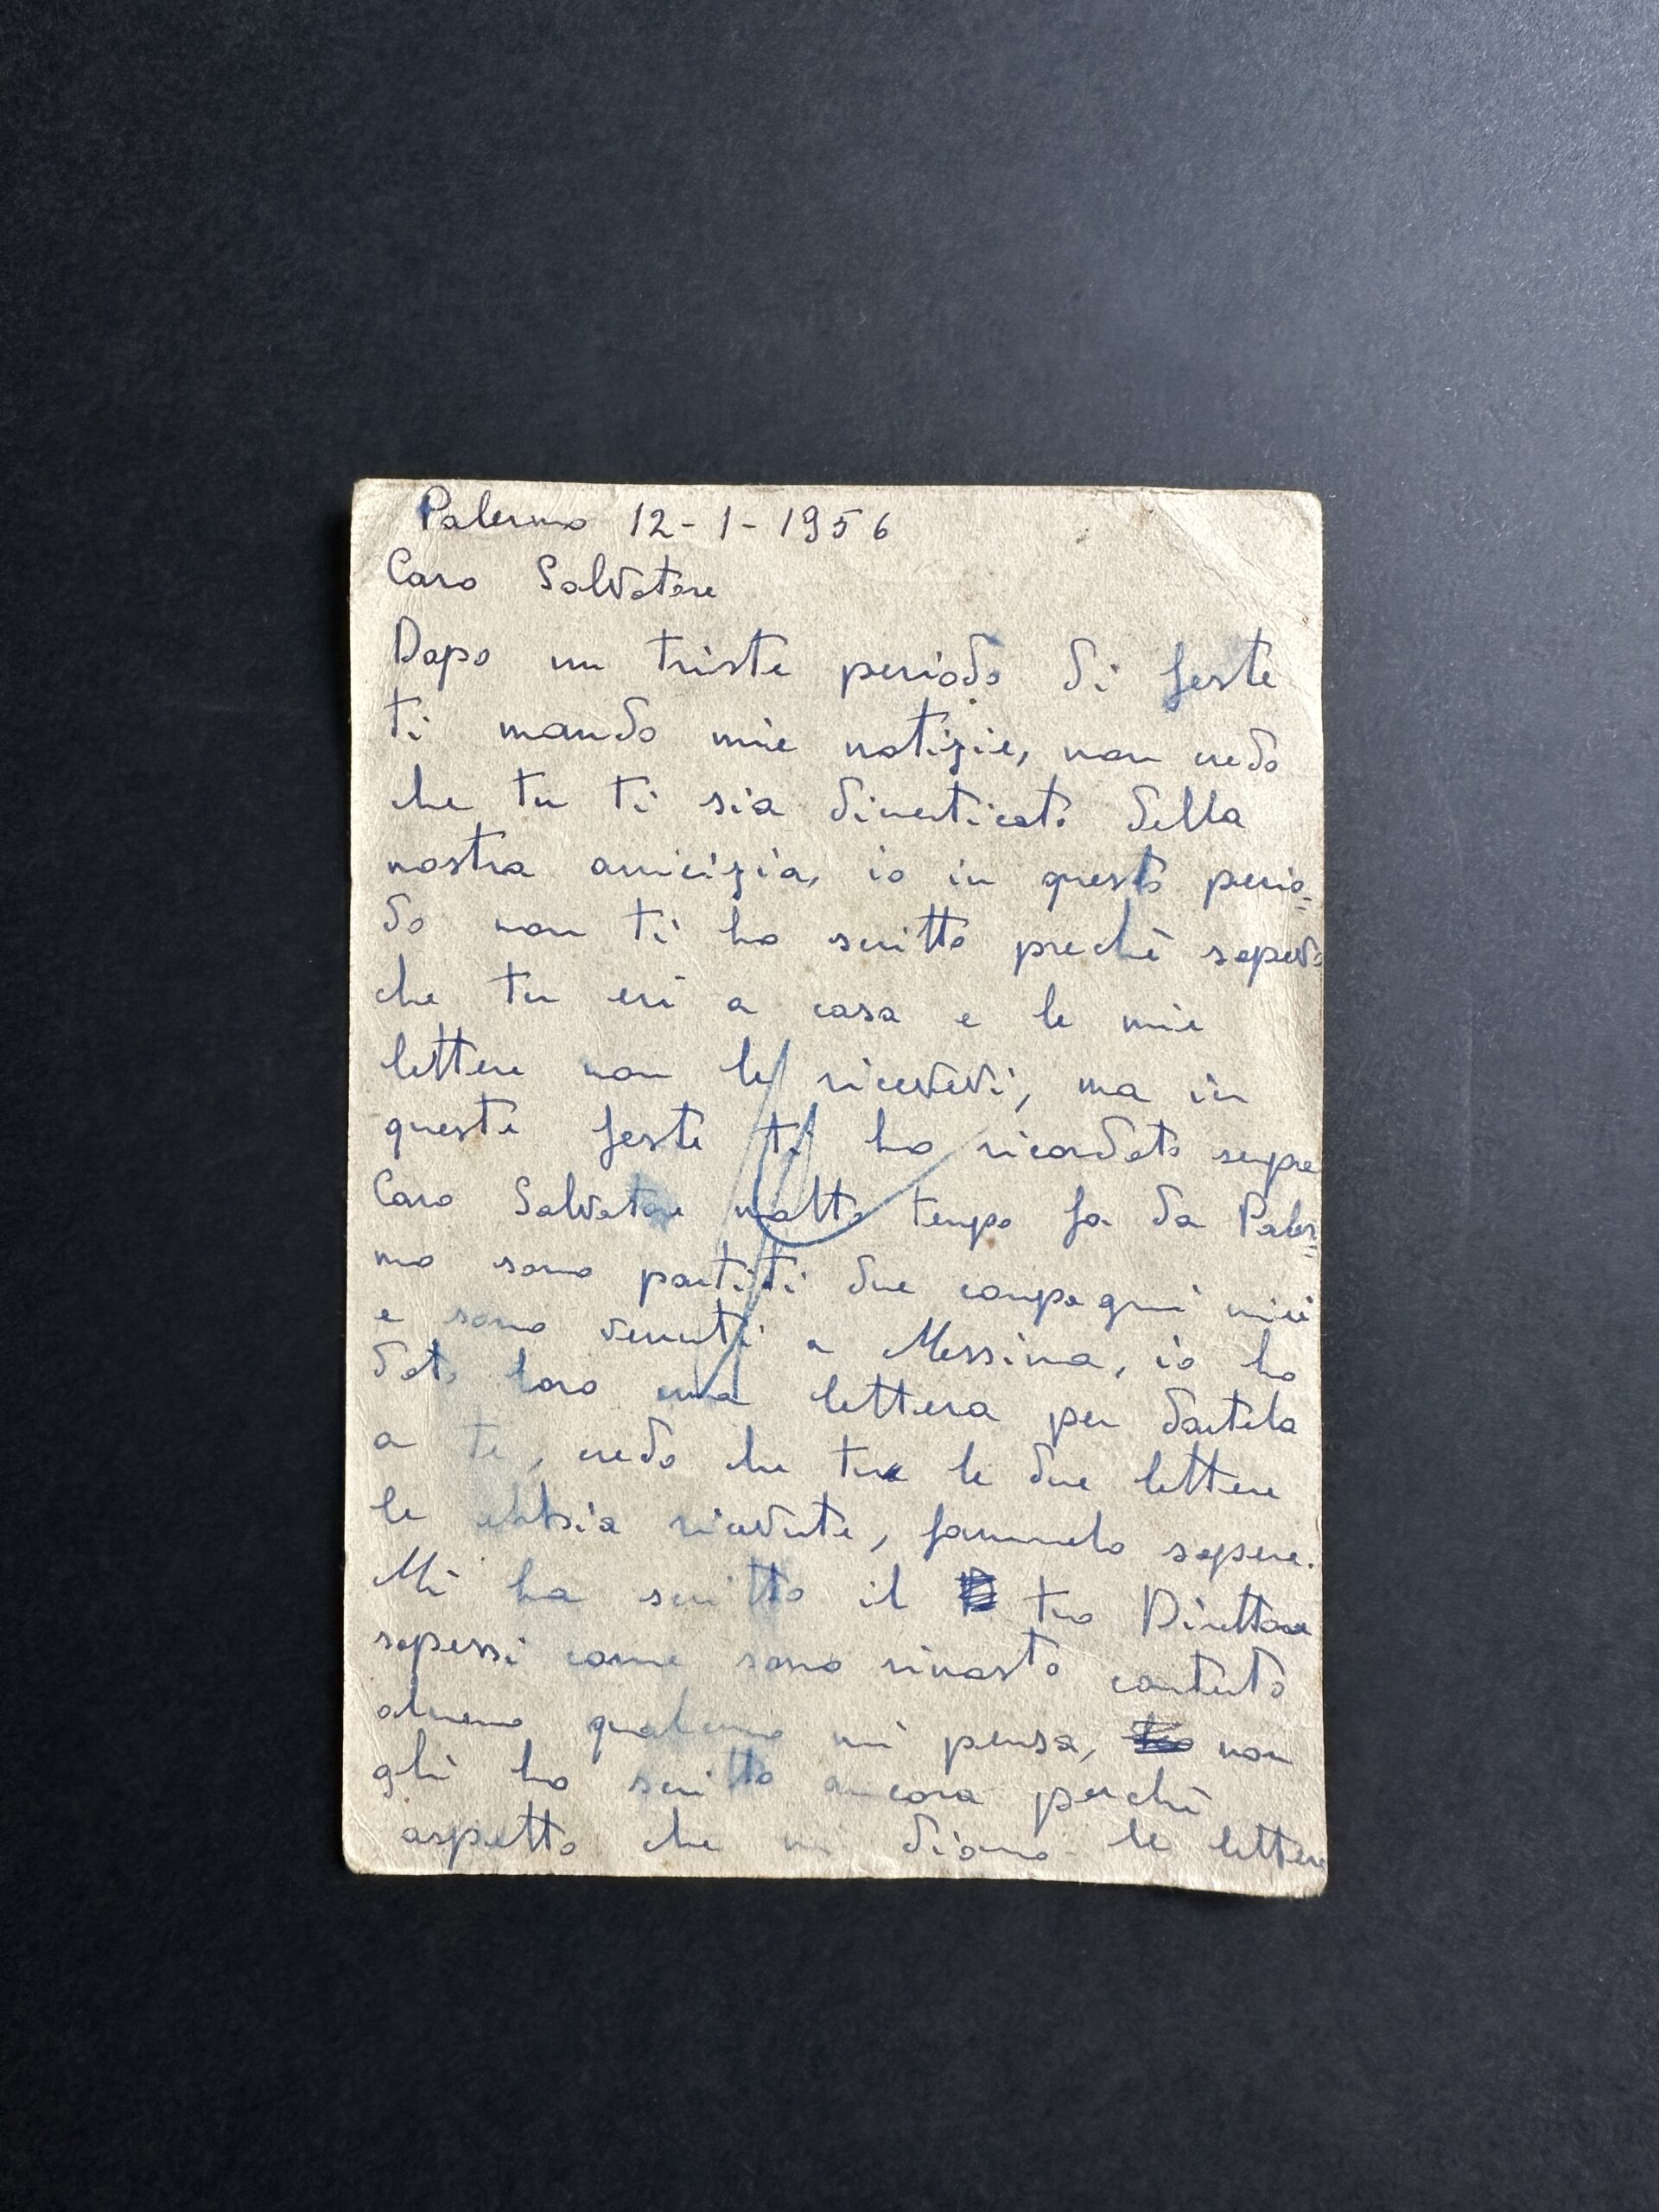 Palermo 12-1-1956
Caro Salvatore
Dopo un triste periodo di feste
ti mando mie notizie, non credo
che tu ti sia dimenticato della
nostra amicizia, io in questo perio=
do non ti ho scritto prechè sapevo
che tu eri a casa e le mie
lettere non le ricevevi, ma in
queste feste ti ho ricordato sempre
Caro Salvatore molto tempo fa da Paler=
mo sono partiti due compagni miei
e sono venuti a Messina, io ho
dato loro una lettera per dartela
a te, credo che tu le due lettere
le abbia ricevute, fammelo sapere.
Mi ha scritto il tuo Direttore
sapessi come sono rimasto contento
almeno qualcuno mi pensa, non
gli ho scritto ancora perchè
aspetto che mi diano le lettere